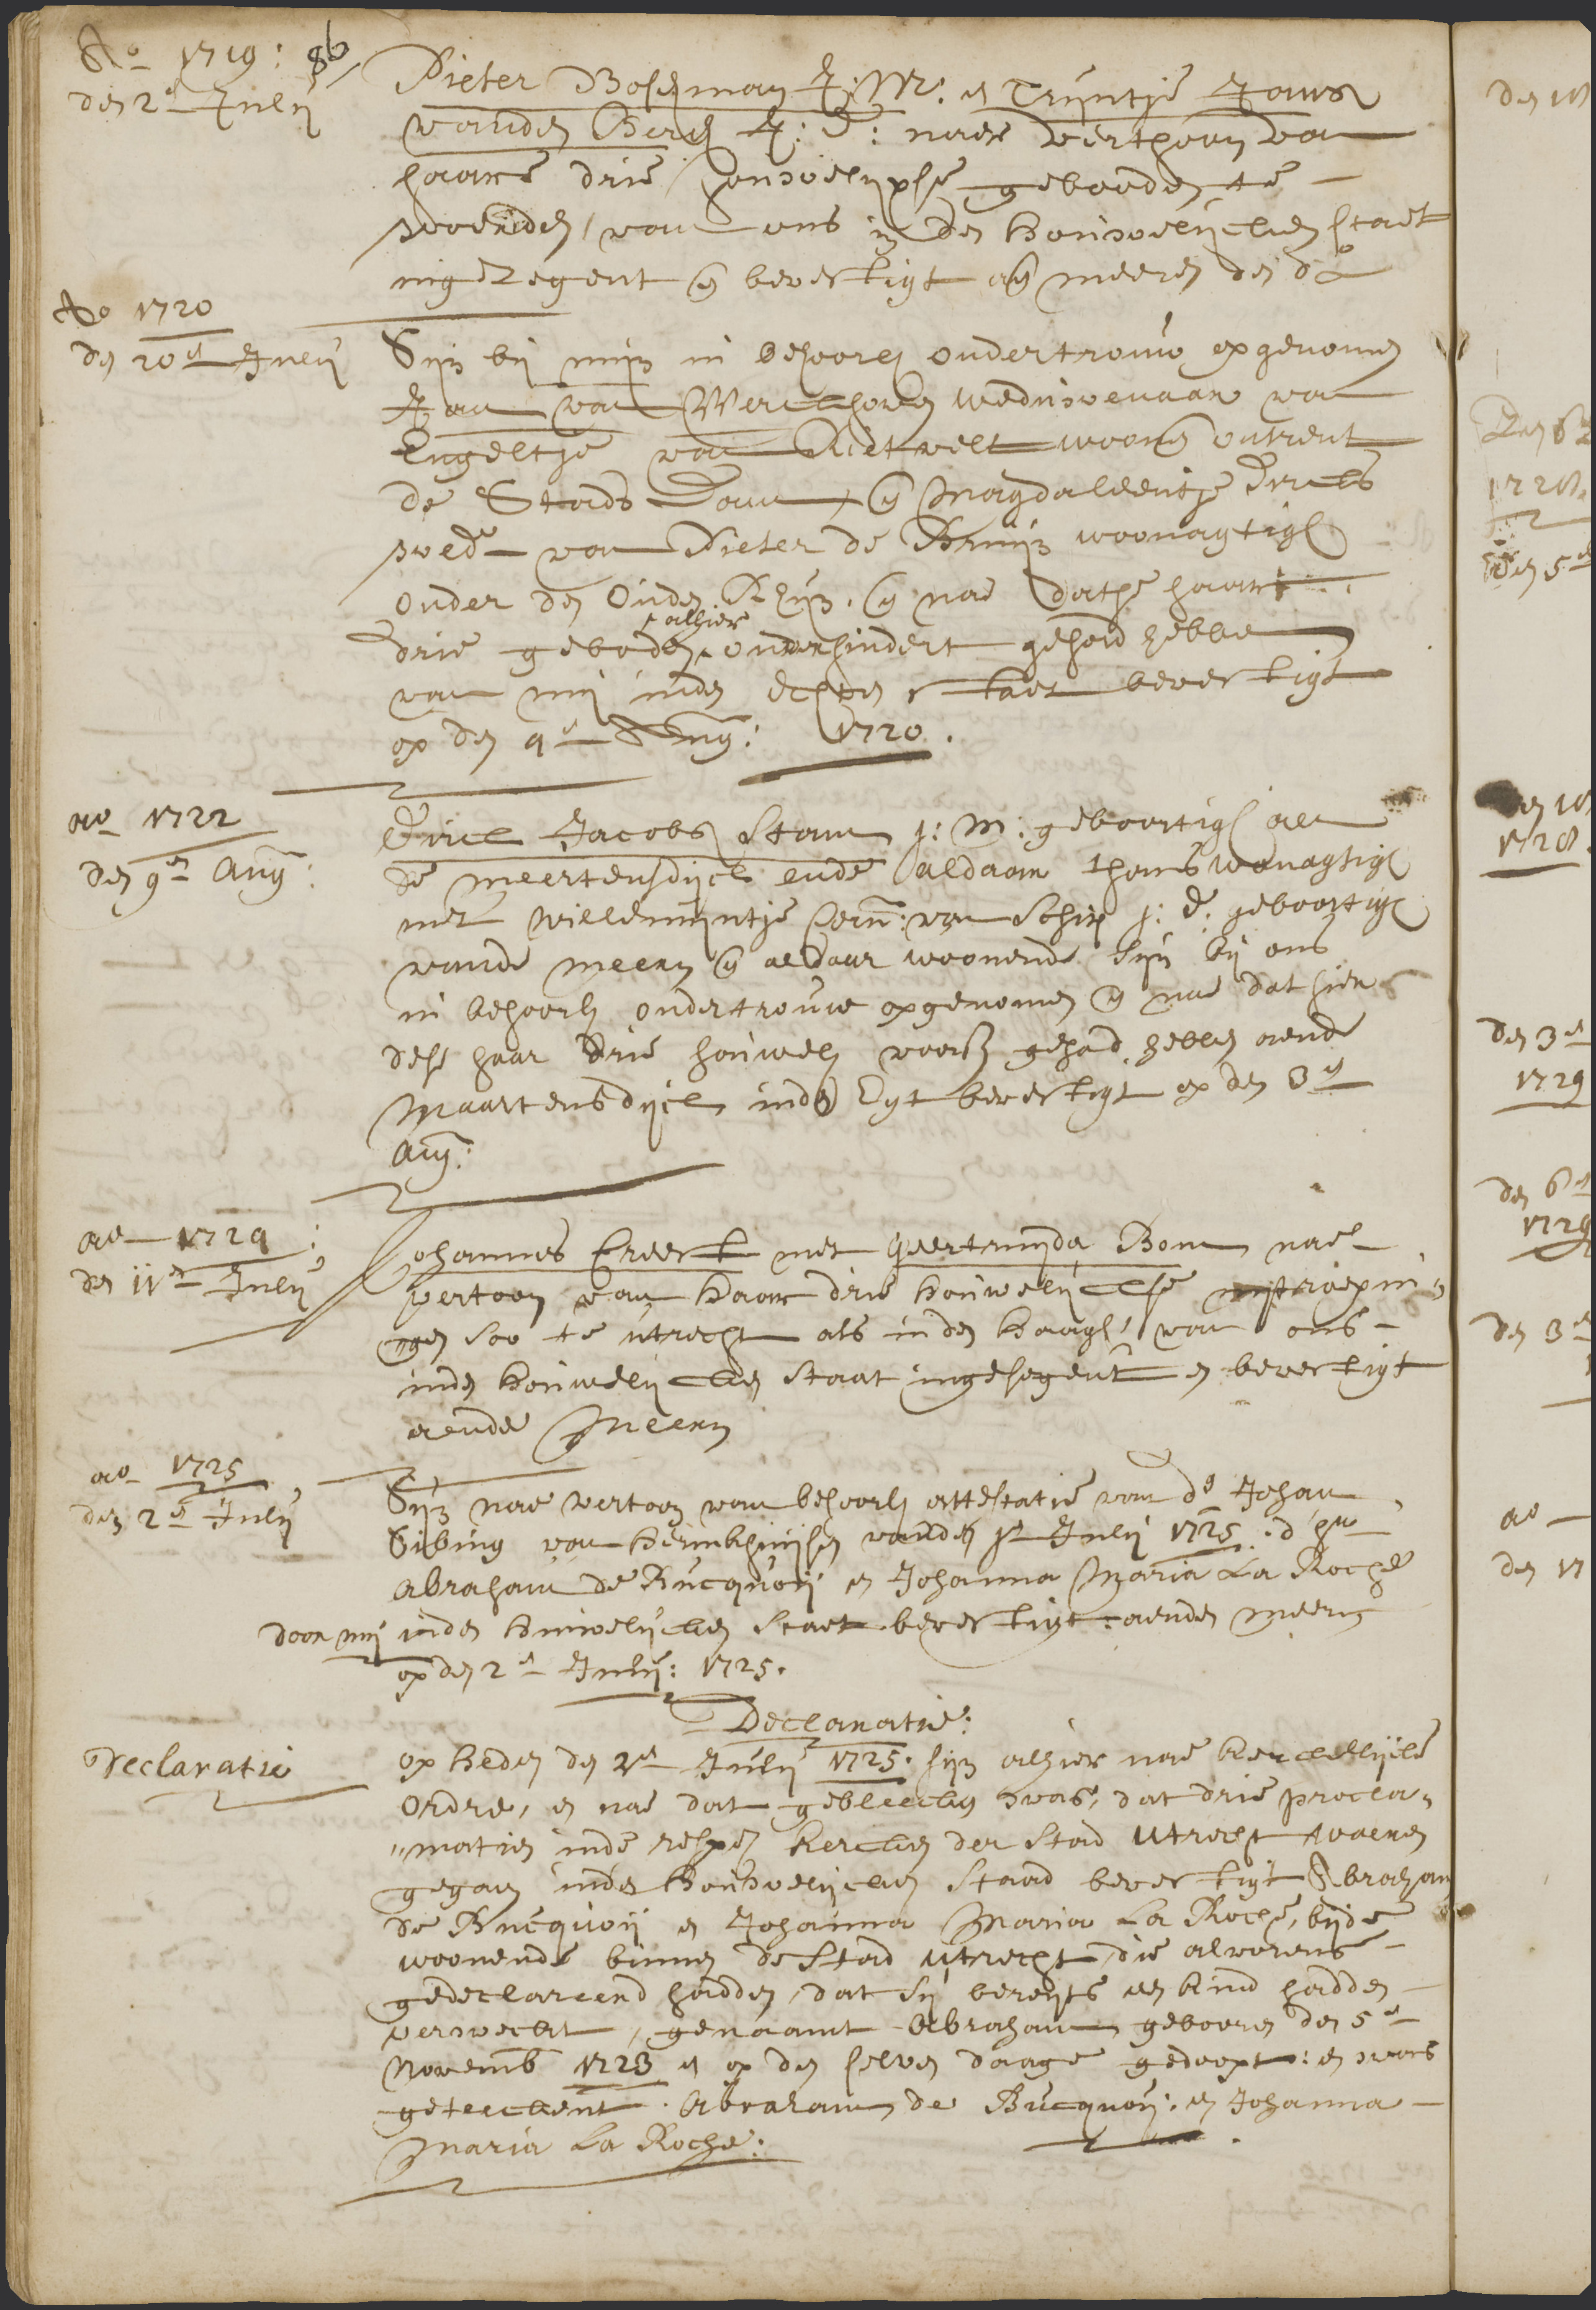 Ao 1719: 86
den 2e Julij
Pieter Boshman J: M: en Trijntje Jans
vanden Berg J: D: naer verthoon van
haare drie houwelijxse gebooden te
woerden, van ons in den houwelijcken staet
ingezegent en bevestigt aen meeren den do
Ao 1720
den 20e Julij
Sijn bij mijn in behoorl. ondertrouw opgenomen
Jan van Werckhoven weduwenaar van
Engeltje van Rietvelt woonen ontrent
de Stads Dam, en Magdaleentje Dircks
wed. van Pieter de Bruijn woonagtigh
onder den Ouden Rhijn. en nae datse haare
drie geboden alhier onverhindert gehad hebben
van mij inden Echten staet bevestigt
op den 4e Aug: 1720.
ao 1722
den 9en Aug:
Dirck Jacobs Stam j: m: geboortigh aen
de Meertensdijck ende aldaar thans wonagtigh
met Willemijntje Corn: van Schip j: d: geboortigh
vande meern en aldaar woonende sijn bij ons
in behoorl. ondertrouw opgenomen en nae dat hier
dese haar drie houwel. voorst. gehad hebben aende
Maartensdijck inde Egt bevestigt op den 3e
Aug:
ao 1724
den 11en Julij
Johannes Creest met Geertruijda Bom nae
vertoon van haar drie houwelijckse uijtroepin„
„gen soo te utrecht als inden haagh, van ons
inden houwelijcken staat ingesegent en bevestigt
aende Meern
ao 1725
den 2e Julij
Sijn nae vertoon van behoorl. attestatie van do Johan
Sibing van herinkhuijsen vanden 1e Julij 1725. d'hr
Abraham de Bucquoij en Johanna Maria La Roche
door mij inden houwelijcken staet bevestigt: aenden meern
op den 2e Julij: 1725.
Declaratie:
Declaratie
Op heden den 2e Julij 1725. sijn alhier nae kerckelijcke
ordre, en nae dat gebleecken was, dat drie procla„
„matien inde respe kercken der Stad Utrecht waeren
gegaen inden houwelijcken staad bevestigt Abraham
de Bucquoij en Johanna Maria La Roche, bijde
woonende binnen de Stad utrecht, die alvorens
gedeclareerd hadden, dat sij bereijts een kind hadden
verweckt, genaamt Abraham geboren den 5e
Novemb 1723 en op den selven daage gedoopt: en was
geteeckent. Abraham de Bucquoij: en Johanna
Maria La Roche:
1728.
den 3e
1729
den 6e
1729
den 3e
ao